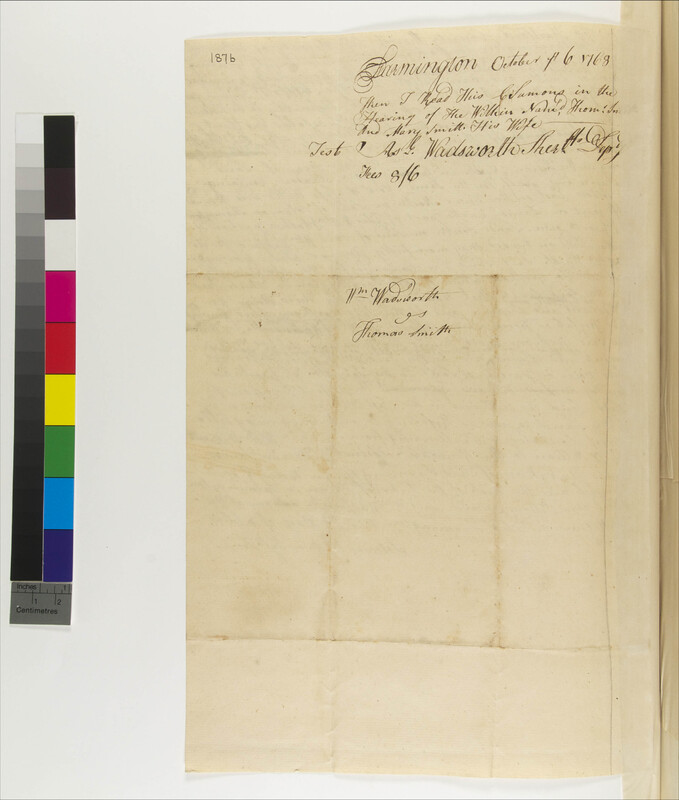 1876
Farmington October ye 6 1768
then I Read this Sumons in the
Hearing of the Within Namd Thoms Sm
And Mary Smith His Wife
Test Wadsworth Sherffs Depty
Fees 3/6
Wm Wadsworth
vs
Thomas Smith
Inches 1
1 2
Centimetres